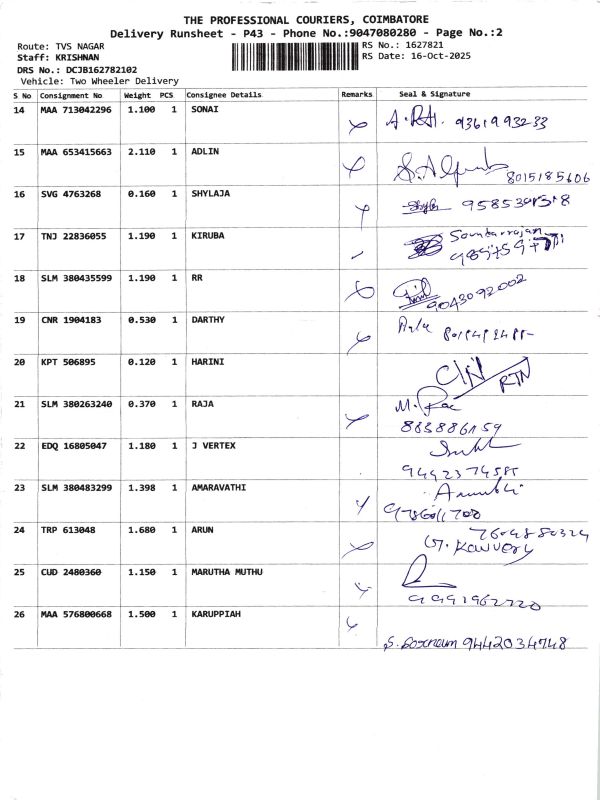 THE PROFESSIONAL COURIERS, COIMBATORE
Delivery Runsheet - P43 - Phone No.:9047080280 - Page No.:2
Route: TVS NAGAR
Staff: KRISHNAN
DRS No.: DCJB162782102
Vehicle: Two Wheeler Delivery
RS No.: 1627821
RS Date: 16-Oct-2025
S No Consignment No Weight PCS Consignee Details Remarks Seal & Signature
14 MAA 713042296 1.100 1 SONAI 9361993233
15 MAA 653415663 2.110 1 ADLIN 8015185606
16 SVG 4763268 0.160 1 SHYLAJA
17 TNJ 22836055 1.190 1 KIRUBA Sountarrajan
18 SLM 380435599 1.190 1 RR 9043092002
19 CNR 1904183 0.530 1 DARTHY
20 KPT 506895 0.120 1 HARINI RTN
21 SLM 380263240 0.370 1 RAJA M.
22 EDQ 16805047 1.180 1 J VERTEX
23 SLM 380483299 1.398 1 AMARAVATHI
24 TRP 613048 1.680 1 ARUN
25 CUD 2480360 1.150 1 MARUTHA MUTHU
26 MAA 576800668 1.500 1 KARUPPIAH
9442034748